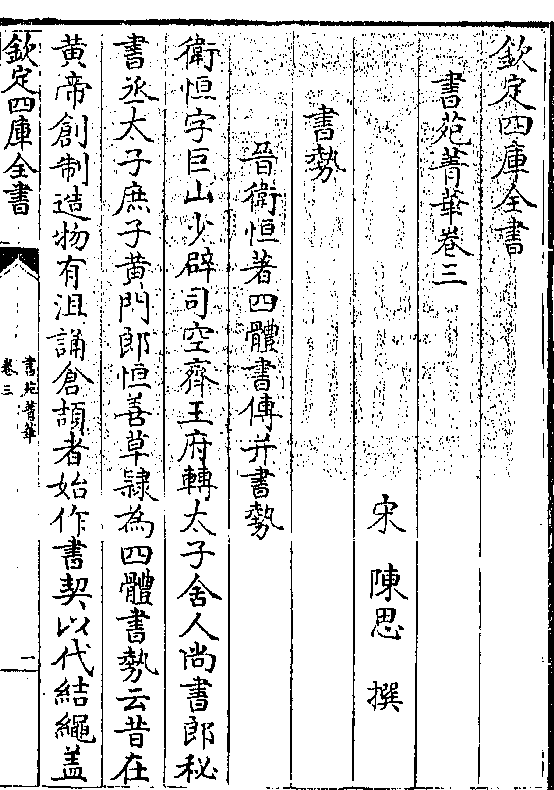 欽定四庫全書
書苑菁華卷三
宋 陳思 撰
書勢
晉衛恒著四體書傳并書勢
衛恒字巨山少辟司空齊王府轉太子舍人尚書郎秘
書丞太子庶子黄門郎恒善草隸為四體書勢云昔在
黄帝創制造物有沮誦倉頡者始作書契以代結繩盖
欽定四庫全書
書苑菁華
卷三
一